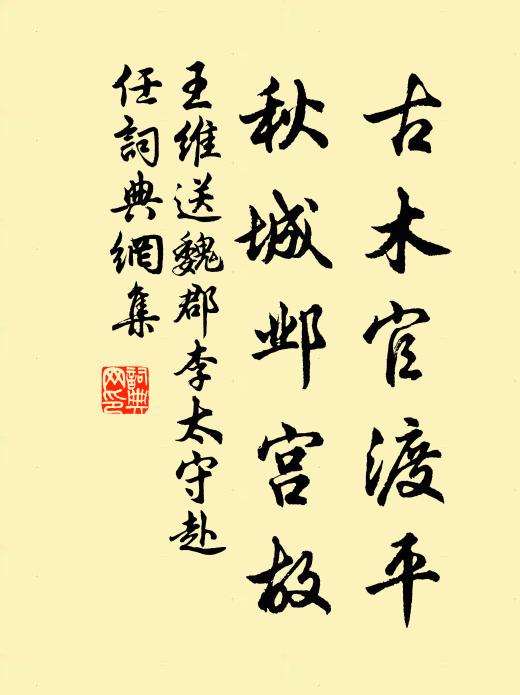 古木官渡平
秋城邺宫故
王维送魏郡李太守赴
任词典網集
詞典
网印